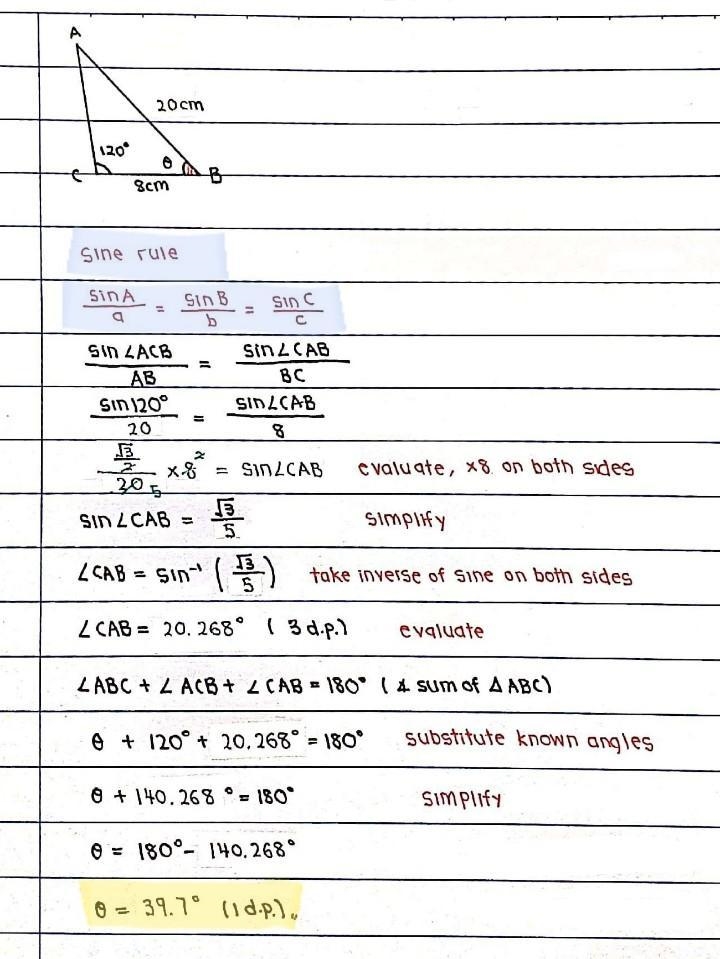 A
20cm
120°
θ
C
B
8cm
Sine rule
sin A / a = sin B / b = sin C / c
sin∠ACB / AB = sin∠CAB / BC
sin120° / 20 = sin∠CAB / 8
(√3/2) / 20 5 × 8 2 = sin∠CAB evaluate, ×8 on both sides
sin∠CAB = √3/5 simplify
∠CAB = sin⁻¹ (√3/5) take inverse of sine on both sides
∠CAB = 20.268° (3 d.p.) evaluate
∠ABC + ∠ACB + ∠CAB = 180° (∡ sum of △ABC)
θ + 120° + 20.268° = 180° substitute known angles
θ + 140.268° = 180° simplify
θ = 180° - 140.268°
θ = 39.7° (1 d.p.)